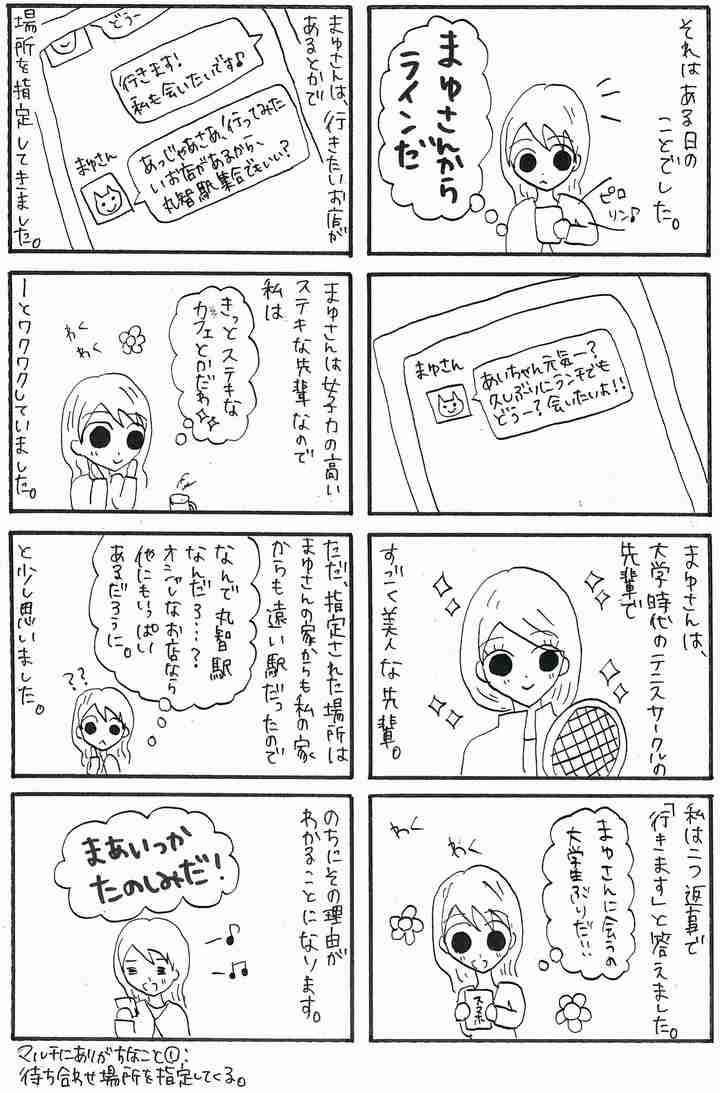 それはある日の
ことでした。
まゆさんから
ラインだ
ピロ
リン♪
まゆさん
あいちゃん元気ー?
久しぶりにランチでも
どうー?会いたいよ!!
まゆさんは、
大学時代のテニスサークルの
先輩で
すごく美人な先輩。
私は二つ返事で
「行きます」と答えました。
まゆさんに会うの
大学生ぶりだ…!
わく
わく
スマホ
どうー
行きます!
私も会いたいです♪
まゆさん
あっじゃあさあ、行ってみた
いお店があるから、
丸智駅集合でもいい?
まゆさんは、行きたいお店が
あるとかで
場所を指定してきました。
まゆさんは女子力の高い
ステキな先輩なので
私は
きっとステキな
カフェとかだわ
わく
わく
ーとワクワクしていました。
ただ、指定された場所は
まゆさんの家からも私の家
からも遠い駅だったので
なんで丸智駅
なんだろ…?
オシャレなお店なら
他にもいっぱい
あるだろうに。
??
と少し思いました。
のちにその理由が
わかることになります。
まあいっか
たのしみだ!
マルチにありがちなこと①:
待ち合わせ場所を指定してくる。